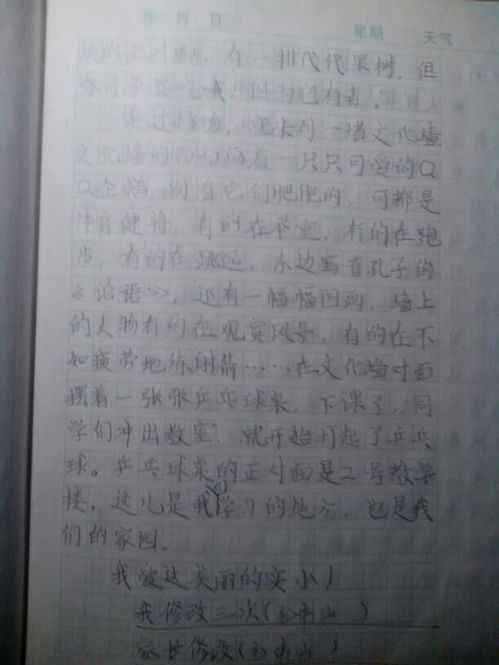 年 月 日 星期 天气
有一排代代果树，但
你可不要吃哦！因为它有毒。
走过 一墙文化墙
文化墙的西边画着一只只可爱的Q
Q企鹅，别看它们肥肥的，可都是
体育健将，有的在 ，有的在跑
步，有的在跳远，东边写着孔子的
《论语》，还有一幅幅图画，墙上
的人物有的在观赏风景，有的在不
知疲劳地练射箭……在文化墙对面
摆着一张张乒乓球桌，下课了，同
学们冲出教室，就开始打起了乒乓
球。乒乓球桌的正对面是2号教学
楼，这儿是我们学习的地方，也是我
们的家园。
我爱这美丽的实小！
我修改三次（ 山 ）
家长修改（ 山 ）